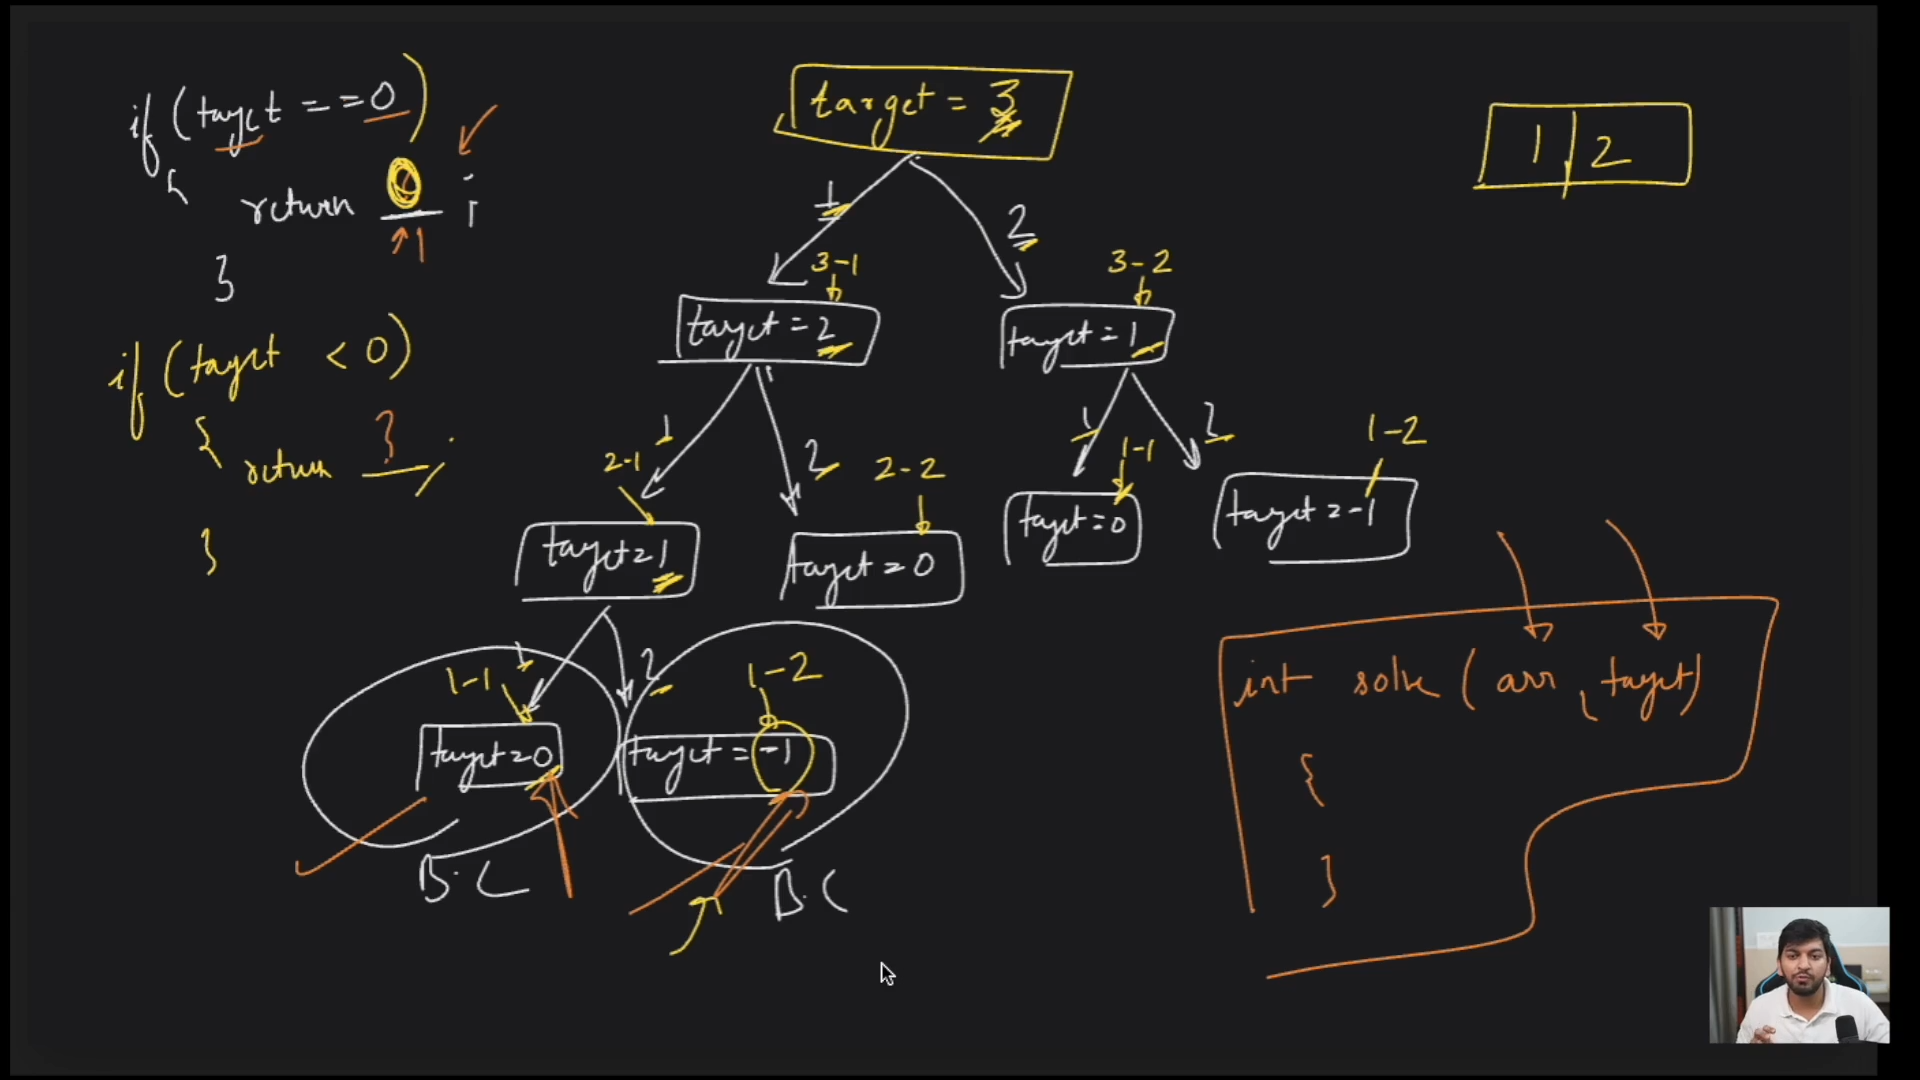 if (target == 0)
{
return 0 ;
↑ 1
}
if (target < 0)
{
return ? ;
}
target = 3
1 2
3-1 3-2
target = 2 target = 1
1 2 1 2
2-1 2-2 1-1 1-2
target = 1 target = 0 target = 0 target = -1
1 2
1-1 1-2
target = 0 target = -1
B.C B.C
1 | 2
int solve (arr, target)
{
}